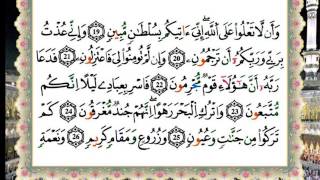 وَأَن لَّا تَعْلُوا عَلَى اللَّهِ إِنِّي آتِيكُم بِسُلْطَانٍ مُّبِينٍ ١٩ وَإِنِّي عُذْتُ
بِرَبِّي وَرَبِّكُمْ أَن تَرْجُمُونِ ٢٠ وَإِن لَّمْ تُؤْمِنُوا لِي فَاعْتَزِلُونِ ٢١ فَدَعَا
رَبَّهُ أَنَّ هَٰؤُلَاءِ قَوْمٌ مُّجْرِمُونَ ٢٢ فَأَسْرِ بِعِبَادِي لَيْلًا إِنَّكُم
مُّتَّبَعُونَ ٢٣ وَاتْرُكِ الْبَحْرَ رَهْوًا إِنَّهُمْ جُندٌ مُّغْرَقُونَ ٢٤ كَمْ
تَرَكُوا مِن جَنَّاتٍ وَعُيُونٍ ٢٥ وَزُرُوعٍ وَمَقَامٍ كَرِيمٍ ٢٦ وَنَعْمَةٍ